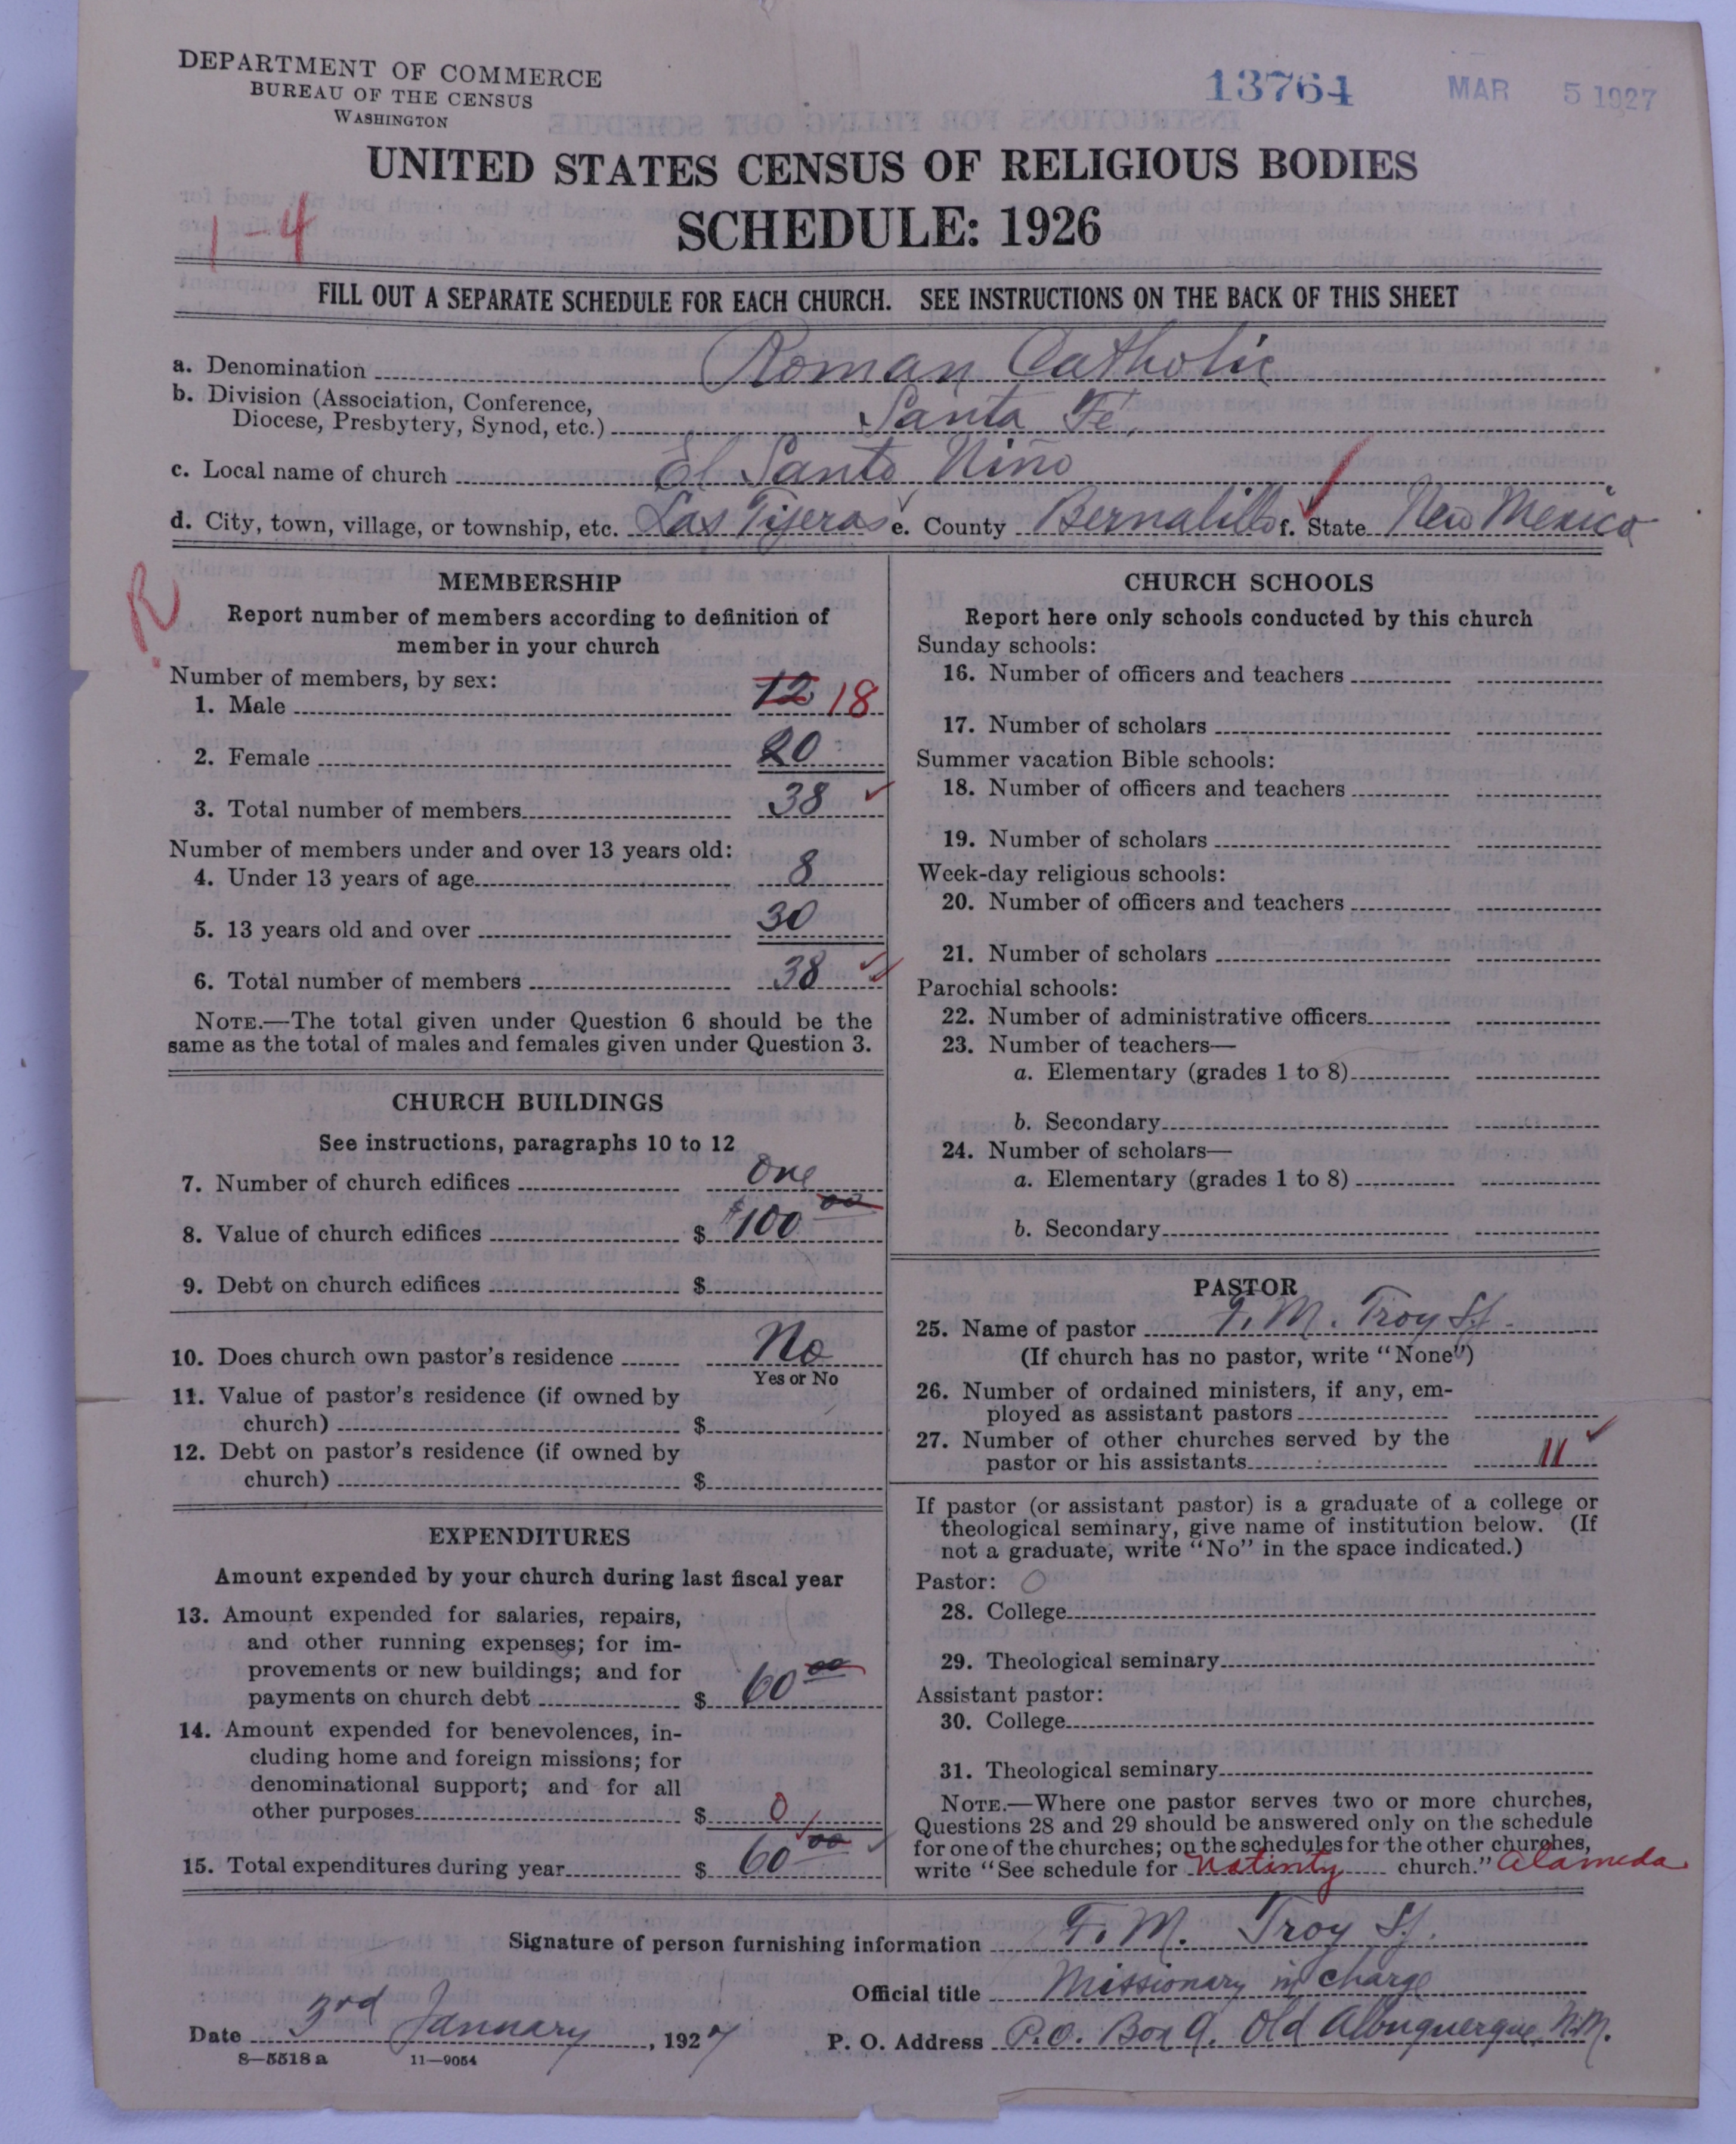 DEPARTMENT OF COMMERCE
BUREAU OF THE CENSUS
WASHINGTON
13764 MAR 5 1927
UNITED STATES CENSUS OF RELIGIOUS BODIES
SCHEDULE: 1926
1-4
FILL OUT A SEPARATE SCHEDULE FOR EACH CHURCH. SEE INSTRUCTIONS ON THE BACK OF THIS SHEET
a. Denomination Roman Catholic
b. Division (Association, Conference,
Diocese, Presbytery, Synod, etc.) Santa Fe.
c. Local name of church El Santo Niño
d. City, town, village, or township, etc. Las Tijeras e. County Bernalillo f. State New Mexico
R
MEMBERSHIP
Report number of members according to definition of
member in your church
Number of members, by sex:
1. Male 12 18
2. Female 20
3. Total number of members 38
Number of members under and over 13 years old:
4. Under 13 years of age 8
5. 13 years old and over 30
6. Total number of members 38
NOTE.—The total given under Question 6 should be the
same as the total of males and females given under Question 3.
CHURCH BUILDINGS
See instructions, paragraphs 10 to 12
7. Number of church edifices One
8. Value of church edifices $ $100 00
9. Debt on church edifices $
10. Does church own pastor's residence No
Yes or No
11. Value of pastor's residence (if owned by
church) $
12. Debt on pastor's residence (if owned by
church) $
EXPENDITURES
Amount expended by your church during last fiscal year
13. Amount expended for salaries, repairs,
and other running expenses; for im-
provements or new buildings; and for
payments on church debt $ 60 00
14. Amount expended for benevolences, in-
cluding home and foreign missions; for
denominational support; and for all
other purposes $ 0
15. Total expenditures during year $ 60 00
CHURCH SCHOOLS
Report here only schools conducted by this church
Sunday schools:
16. Number of officers and teachers
17. Number of scholars
Summer vacation Bible schools:
18. Number of officers and teachers
19. Number of scholars
Week-day religious schools:
20. Number of officers and teachers
21. Number of scholars
Parochial schools:
22. Number of administrative officers
23. Number of teachers—
a. Elementary (grades 1 to 8)
b. Secondary
24. Number of scholars—
a. Elementary (grades 1 to 8)
b. Secondary
PASTOR
25. Name of pastor F. M. Troy SJ
(If church has no pastor, write "None")
26. Number of ordained ministers, if any, em-
ployed as assistant pastors
27. Number of other churches served by the
pastor or his assistants 11
If pastor (or assistant pastor) is a graduate of a college or
theological seminary, give name of institution below. (If
not a graduate, write "No" in the space indicated.)
Pastor: O
28. College
29. Theological seminary
Assistant pastor:
30. College
31. Theological seminary
NOTE.—Where one pastor serves two or more churches,
Questions 28 and 29 should be answered only on the schedule
for one of the churches; on the schedules for the other churches,
write "See schedule for Nativity church." Alameda
Signature of person furnishing information F. M. Troy SJ.
Official title Missionary in charge
Date 3rd January, 1927 P. O. Address P.O. Box 9. Old Albuquerque, N.M.
8—5518 a 11—9054